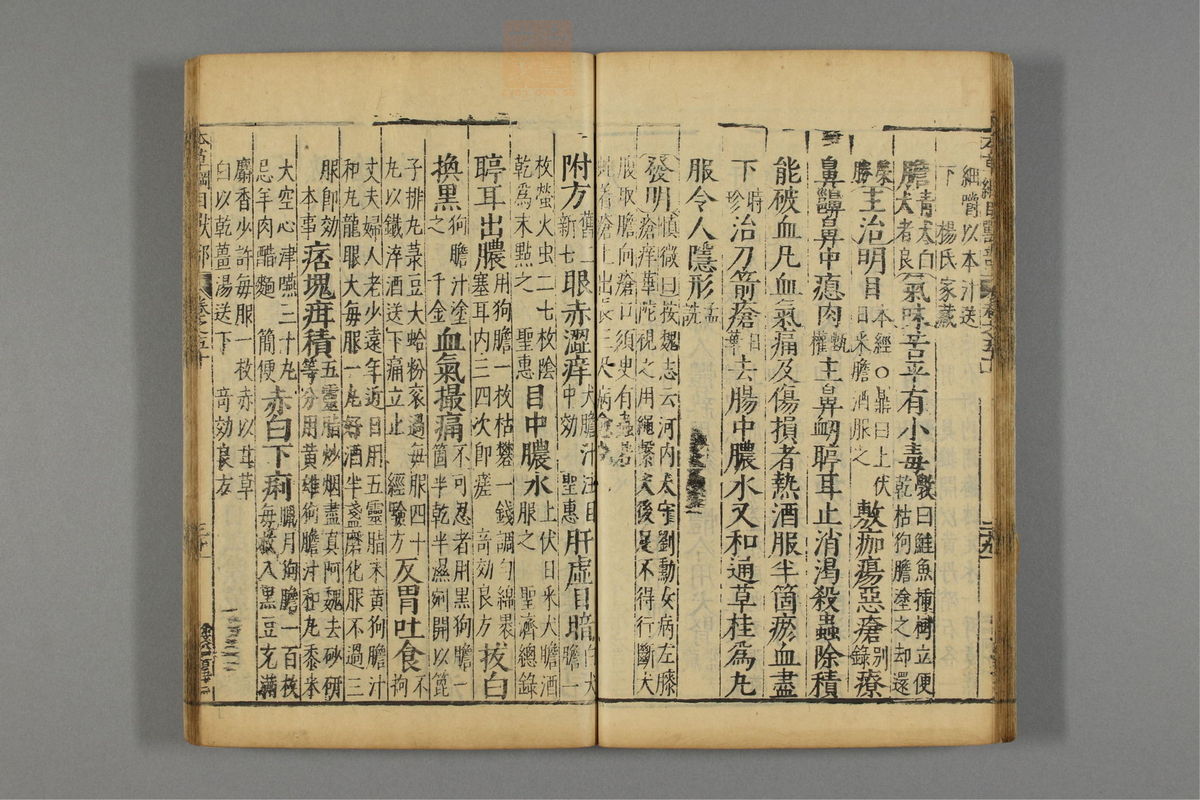 細嚼以本汁送下 楊氏家藏
膽 青犬白犬者良 氣味苦平有小毒 敩曰鮭魚插樹立便乾枯狗膽塗之却還
榮勝 主治明目 本經○鼎曰上伏日采膽酒服之 敷痂瘍惡瘡 別錄 療
鼻齆鼻中瘜肉 甄權 主鼻衄聤耳止消渴殺蟲除積
能破血凡血氣痛及傷損者熱酒服半箇瘀血盡
下 時珍 治刀箭瘡 日華 去腸中膿水又和通草桂爲丸
服令人隱形 孟詵
發明 慎微曰按魏志云河内太守劉勳女病左膝瘡痒華陀視之用繩繫犬後足不得行斷犬
腹取膽向瘡口須臾有蟲若蛇着瘡上出長三尺病愈
附方 舊二新七 眼赤澀痒 犬膽汁注目中効 聖惠 肝虛目暗 白犬膽一
枚螢火虫二七枚陰乾爲末點之 聖惠 目中膿水 上伏日采犬膽酒服之 聖濟總錄
聤耳出膿 用狗膽一枚枯礬一錢調勻綿裹塞耳内三四次即瘥 奇効良方 拔白
換黑 狗膽汁塗之 千金 血氣撮痛 不可忍者用黑狗膽一箇半乾半濕剜開以篦
子排丸菉豆大蛤粉衮過每服四十丸以鐵淬酒送下痛立止 經驗方 反胃吐食 不拘
丈夫婦人老少遠年近日用五靈脂末黃狗膽汁和丸龍眼大每服一丸好酒半盞磨化服不過三
服即効 本事 痞塊疳積 五靈脂炒烟盡真阿魏去砂研等分用黃雄狗膽汁和丸黍米
大空心津嚥三十丸忌羊肉醋麵 簡便 赤白下痢 臘月狗膽一百枚每枚入黑豆充滿
麝香少許每服一枚赤以甘草白以乾薑湯送下 奇効良方
本草綱目獸部 卷之五十